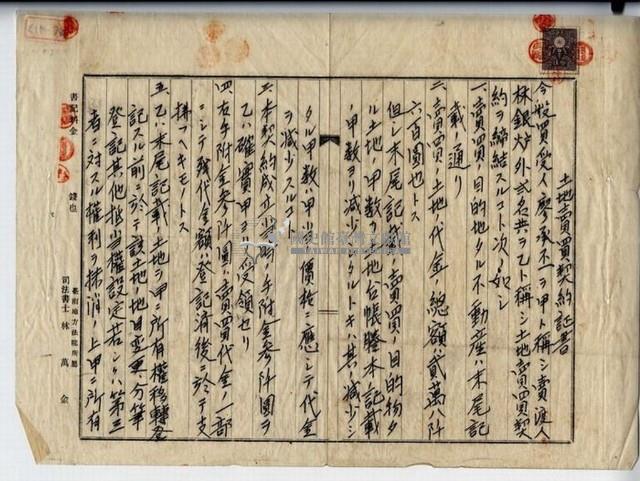 土地賣買契約証書
今般買受人廖承丕ヲ甲ト稱シ賣渡人
林銀炉外弍名共ヲ乙ト稱シ土地賣買契
約ヲ締結スルコト次ノ如シ
一、賣買ノ目的地タル不動産ハ末尾記
載ノ通リ
二、賣買ノ土地ノ代金ノ總額ハ貳萬八阡
六百圓也トス
但シ末尾記載ノ土地台帳謄本記載
ル土地ノ甲数ハ賣買ノ目的物タ
ノ甲数ヨリ減少シタルトキハ其ノ減少シ
タル甲数ハ甲当リノ價格ニ應シテ代金
ヲ減少スルコト
三、本契約成立ト同時ニ手附金参阡圓ヲ
乙ハ確實甲ヨリ受領セリ
四、右手附金参阡圓ハ賣買代金ノ一部
ニシテ残代金額ハ登記済後ニ於テ支
拂フヘキモノトス
五、乙ハ末尾記載ノ土地ヲ甲ニ所有權移轉登
記スル前ニ於テ該土地ノ地目変更、分筆
登記其他抵当權設定若シクハ第三
者ニ対スル權利ヲ抹消ノ上甲ニ所有
書記料金 錢也
臺南地方法院所屬
司法書士 林萬金
國史館臺灣文獻館